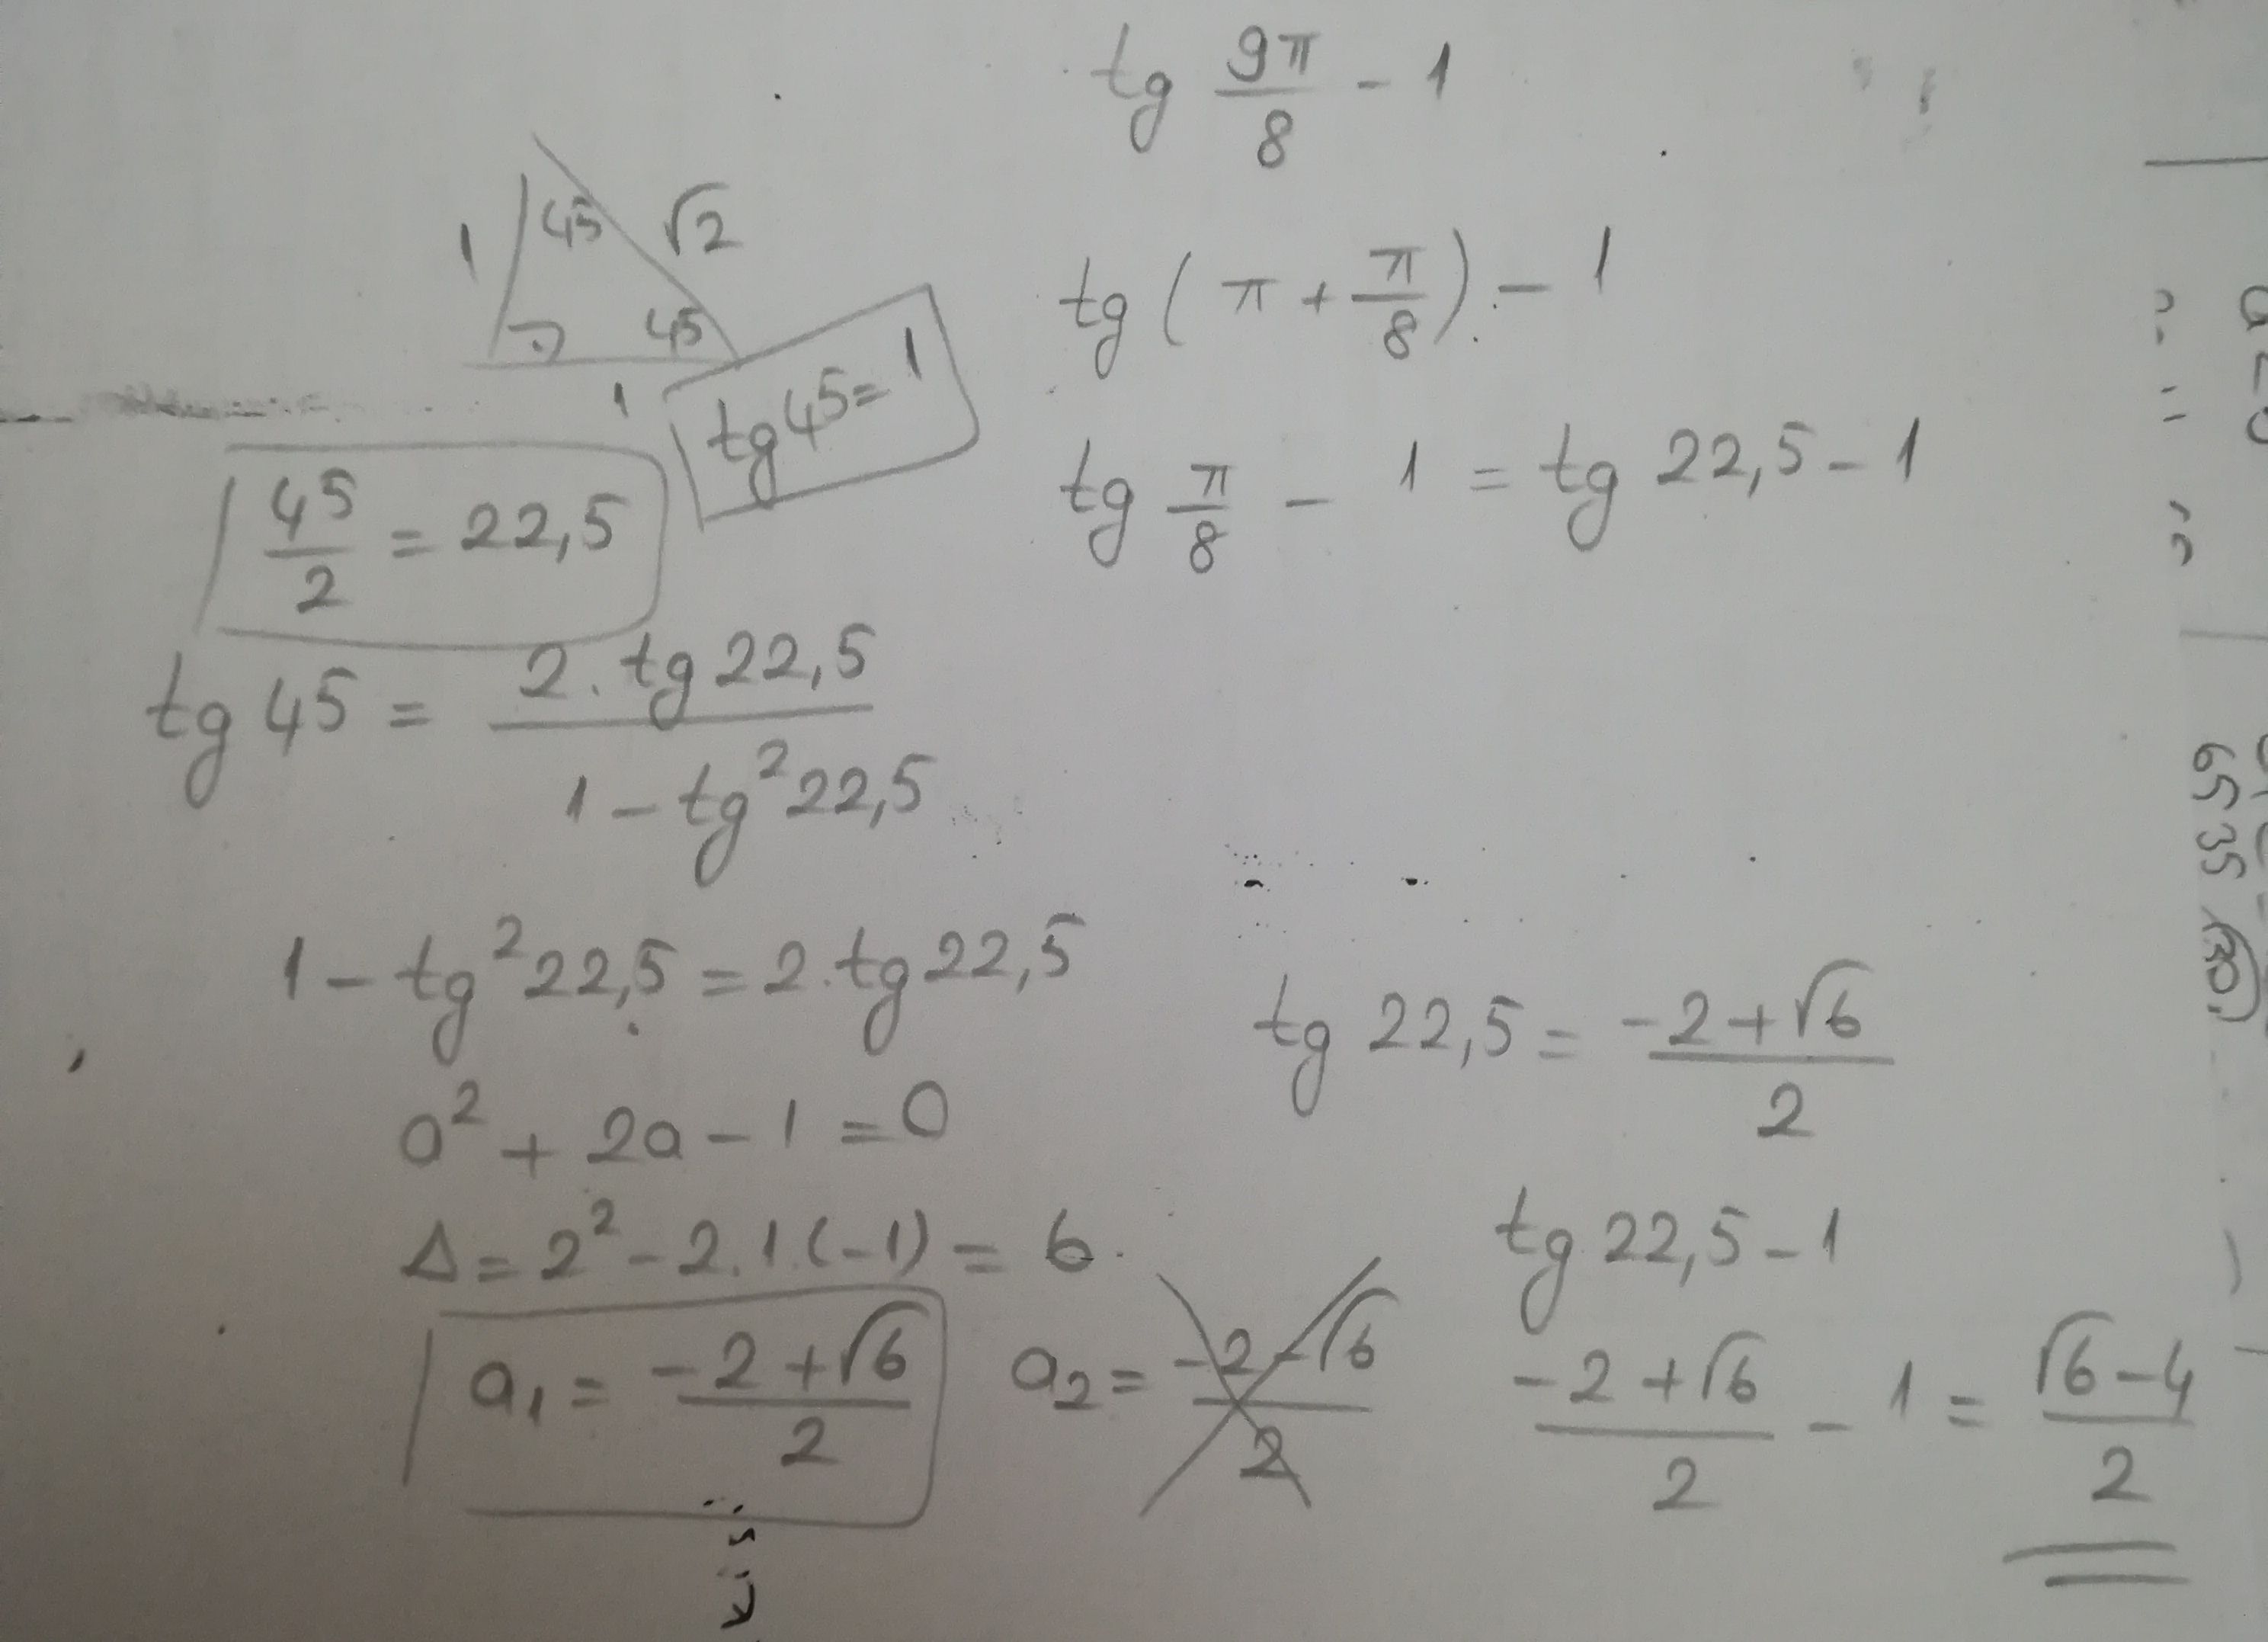 tg 9π/8 - 1
1 45 √2
45
1
tg 45 = 1
tg ( π + π/8 ) - 1
tg π/8 - 1 = tg 22,5 - 1
45/2 = 22,5
tg 45 = 2 . tg 22,5 / 1 - tg² 22,5
1 - tg² 22,5 = 2 . tg 22,5
a² + 2a - 1 = 0
Δ = 2² - 2 . 1 . (-1) = 6
a₁ = -2 + √6 / 2
a₂ = -2 - √6 / 2
tg 22,5 = -2 + √6 / 2
tg 22,5 - 1
-2 + √6 / 2 - 1 = √6 - 4 / 2
65 35